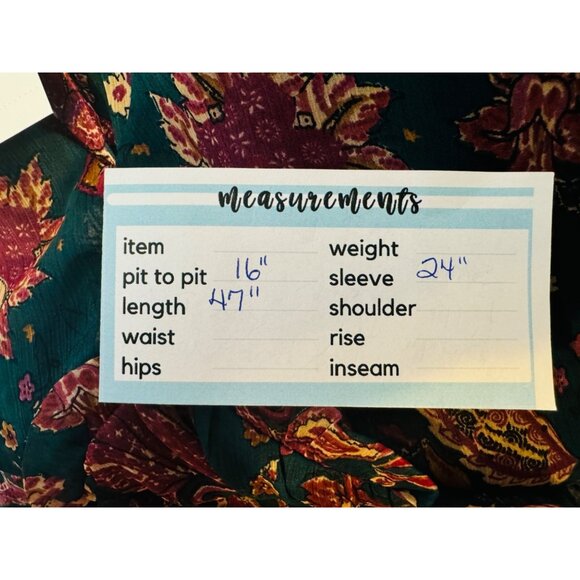 measurements
item
pit to pit 16"
length 47"
waist
hips
weight
sleeve 24"
shoulder
rise
inseam